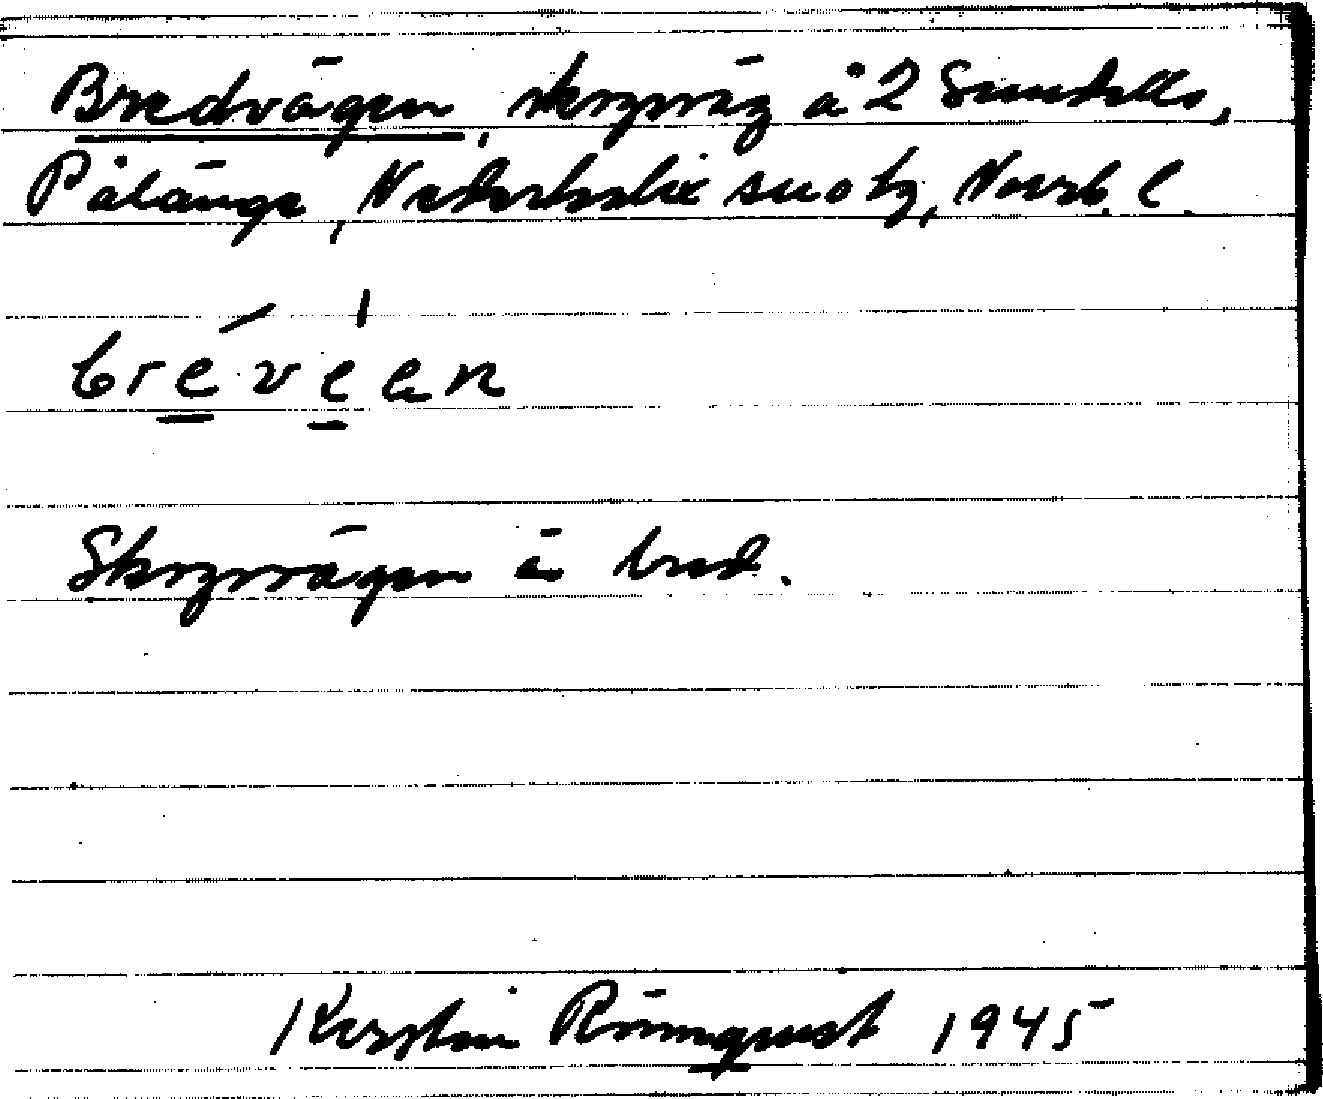 Bredvägen, skogsväg å 2 Sundells,
Pålänge, Nederkalix sn o tg, Norrb. l.
brevean
Skogsvägen är bred.
Kerstin Rönnqvist 1945